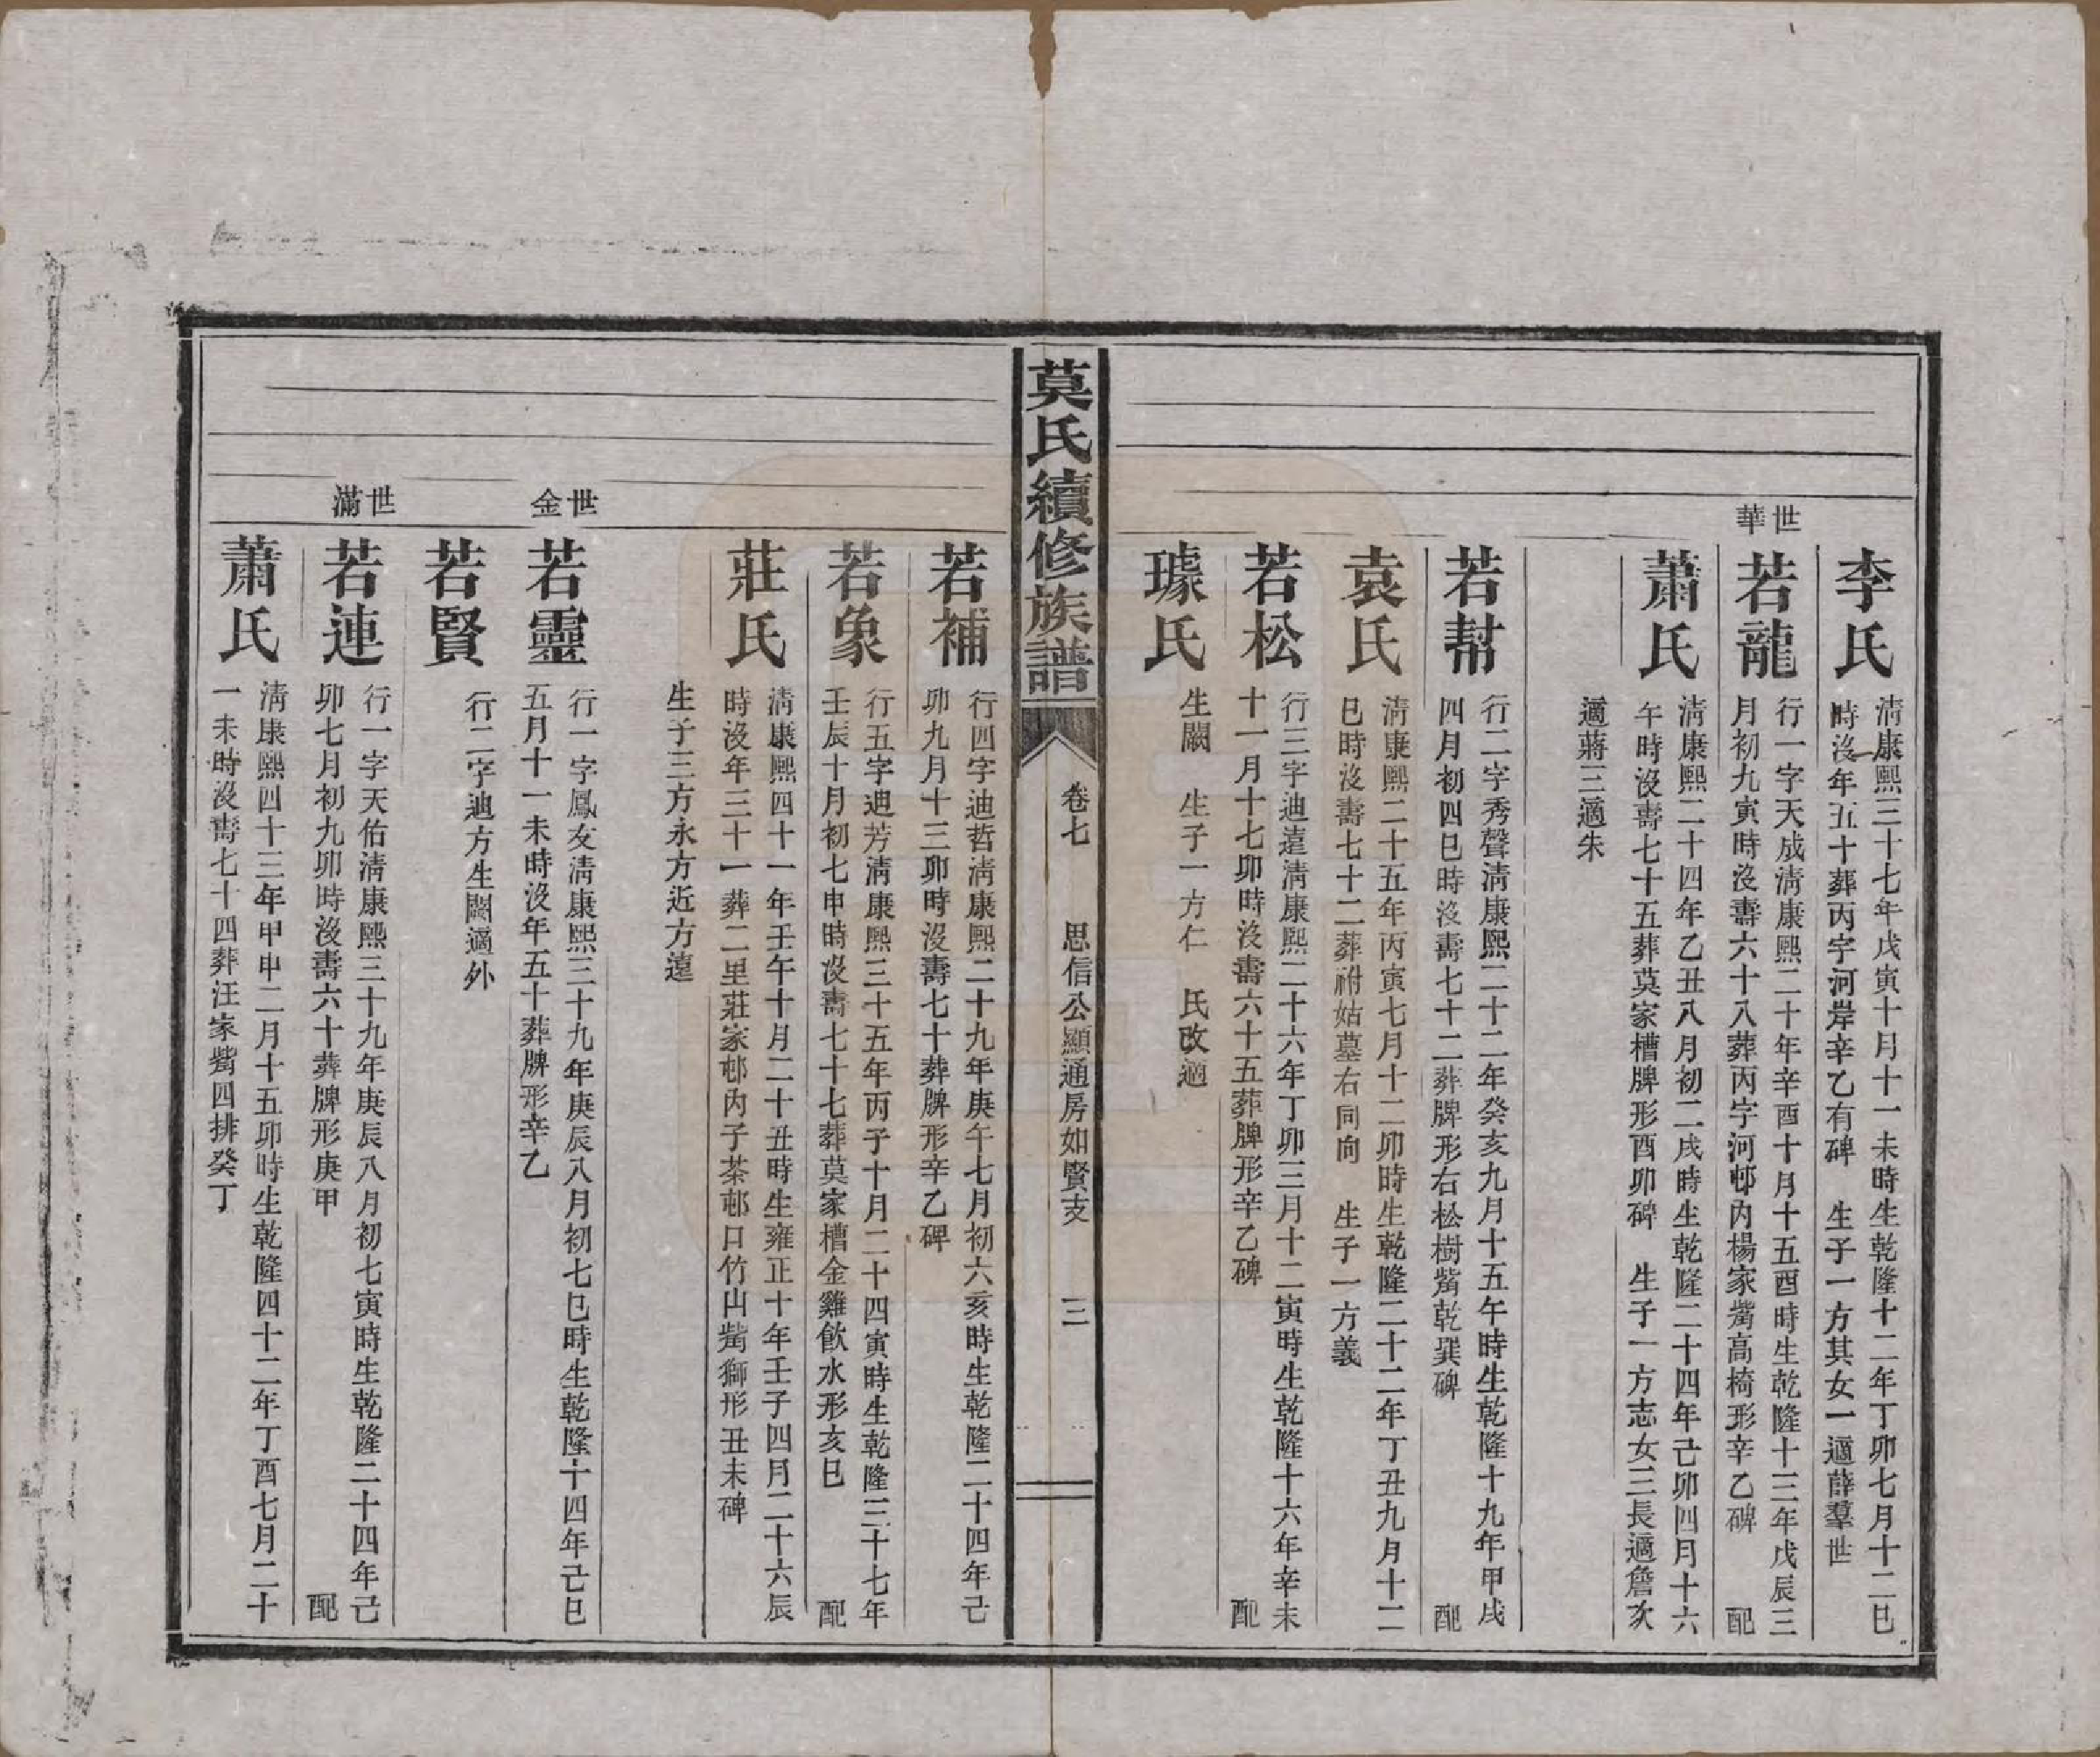 李氏
淸康熙三十七年戊寅十月十一未時生乾隆十二年丁卯七月十二巳
時沒年五十葬丙字河岸辛乙有碑　生子一方其女一適薛羣世
世華
若龍
行一字天成淸康熙二十年辛酉十月十五酉時生乾隆十三年戊辰三
月初九寅時沒壽六十八葬丙字河邨內楊家嘴高椅形辛乙碑　配
蕭氏
淸康熙二十四年乙丑八月初二戌時生乾隆二十四年己卯四月十六
午時沒壽七十五葬莫家槽牌形酉卯碑　生子一方志女三長適詹次
適蔣三適朱
若幇
行二字秀聲淸康熙二十二年癸亥九月十五午時生乾隆十九年甲戌
四月初四巳時沒壽七十二葬牌形右松樹嘴乾巽碑　配
袁氏
淸康熙二十五年丙寅七月十二卯時生乾隆二十二年丁丑九月十二
巳時沒壽七十二葬祔姑墓右同向　生子一方義
若松
行三字迪遠淸康熙二十六年丁卯三月十二寅時生乾隆十六年辛未
十一月十七卯時沒壽六十五葬牌形辛乙碑　配
璩氏
生闕　生子一方仁　氏改適
莫氏續修族譜
卷七　思信公顯通房如賢支　三
若補
行四字迪哲淸康熙二十九年庚午七月初六亥時生乾隆二十四年己
卯九月十三卯時沒壽七十葬牌形辛乙碑
若象
行五字迪芳淸康熙三十五年丙子十月二十四寅時生乾隆三十七年
壬辰十月初七申時沒壽七十七葬莫家槽金雞飲水形亥巳　配
莊氏
淸康熙四十一年壬午十月二十丑時生雍正十年壬子四月二十六辰
時沒年三十一葬二里莊家邨內子茶邨口竹山嘴獅形丑未碑
生子三方永方近方遠
世金
若靈
行一字鳳友淸康熙三十九年庚辰八月初七巳時生乾隆十四年己巳
五月十一未時沒年五十葬牌形辛乙
若賢
行二字迪方生闕適外
世滿
若連
行一字天佑淸康熙三十九年庚辰八月初七寅時生乾隆二十四年己
卯七月初九卯時沒壽六十葬牌形庚甲　配
蕭氏
淸康熙四十三年甲申二月十五卯時生乾隆四十二年丁酉七月二十
一未時沒壽七十四葬汪家嘴四排癸丁